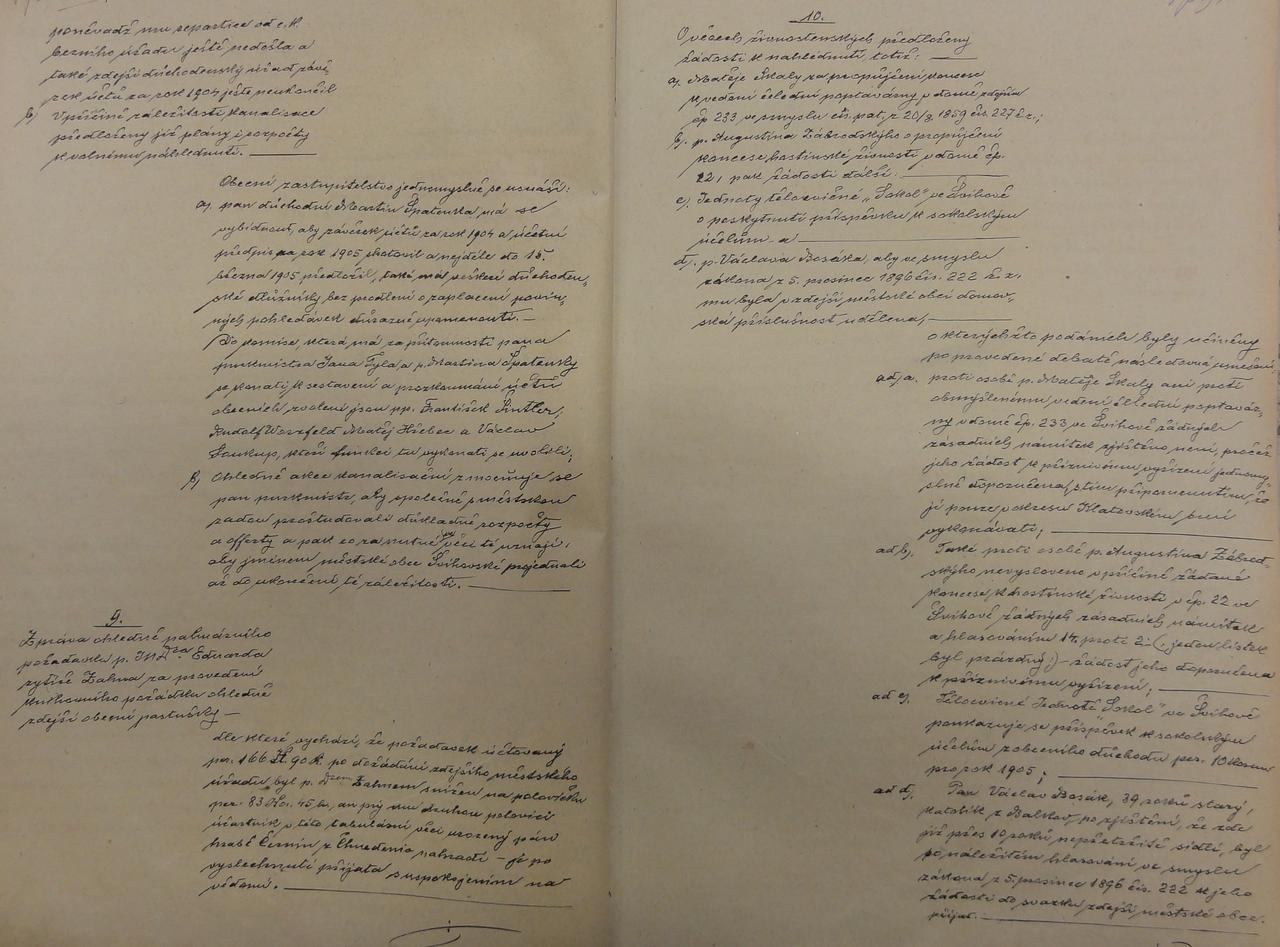 poněvadž mu repartice od c. k.
berního úřadu ještě nedošla a
také zdejší důchodenský úřad závě-
rek účtů za rok 1904 ještě neukončil
b) V příčině záležitosti kanalisace
předloženy již plány i rozpočty
k volnému náhlednutí. —
Obecní zastupitelstvo jednomyslně se usnáší:
a) pan důchodní Martin Špatenka má se
vybídnout, aby závěrek účtů za rok 1904 a účetní
předpis za rok 1905 zhotovil a nejdéle do 15.
března 1905 předložil, také má veškeré důchoden-
ské dlužníky bez prodlení o zaplacení povin-
ných pohledávek důrazně upomenouti. —
Do komise, která má za přítomnosti pana
purkmistra Jana Tyla a p. Martina Špatenky
se konati k sestavení a prozkoumání účtů
obecních zvoleni jsou pp. František Šintler,
Rudolf Worzfeld Matěj Hřebec a Václav
Soukup, kteří funkci tu vykonati se uvolili;
b) Ohledně akce kanalisační zmocňuje se
pan purkmistr, aby společně s městskou
radou prostudovali důkladně rozpočty
a offerty a pak co za nutné při věci té uznají,
aby jménem městské obce Švihovské projednali
až do ukončení té záležitosti. —
9.
Zpráva ohledně palmárního
požadavku p. JUDra Eduarda
rytíře Zahna za provedení
knihovního pořádku ohledně
zdejší obecní pastušky —
dle které vychází, že požadavek účtovaný
per. 166 K. 90 h. po dožádání zdejšího městského
úřadu byl p. Drem Zahnem snížen na polovičku
per. 83 Kor. 45 h., an prý mu druhou polovici
účastník v této tabulární věci urozený pán
hrabě Černín z Chudenic nahradí — je po
vyslechnutí přijata s uspokojením na
vědomí. —
10.
O věcech živnostenských předloženy
žádosti k nahlédnutí, totiž: —
a) Matěje Skaly za propůjčení koncese
k vedení čelední poptavárny v domě zdejším
čp 233 ve smyslu cís. pat. z 20/8. 1859 čís. 227 ř. z.;
b) p. Augustina Zábrodského o propůjčení
koncese hostinské živnosti v domě čp.
22, pak žádosti další: —
c) Jednoty tělocvičné „Sokol" ve Švihově
o poskytnutí příspěvku k sokolským
účelům a —
d) p. Václava Bosáka, aby ve smyslu
zákona z 5. prosince 1896 čís. 222 ř. z.
mu byla v zdejší městské obci domov-
ská příslušnost udělena, —
o kterýchžto podáních byly učiněny
po provedené debatě následovná usnešení:
ad a. proti osobě p. Matěje Skaly ani proti
obmýšlenému vedení čelední poptavár-
ny v domě čp. 233 ve Švihově žádných
zásadních námitek zjištěno není, pročež
jeho žádost k příznivému vyřízení jednomy-
slně doporučena, s tím připomenutím, že
ji pouze v okresu Klatovském smí
vykonávati; —
ad b. Také proti osobě p. Augustina Zábrod-
ského nevysloveno v příčině žádané
koncese k hostinské živnosti v čp. 22 ve
Švihově žádných zásadních námitek
a hlasováním 14. proti 2: (: jeden lístek
byl prázdný:) — žádost jeho doporučena
k příznivému vyřízení; —
ad c) Tělocvičné Jednotě „Sokol" ve Švihově
poukazuje se příspěvek k sokolským
účelům z obecního důchodu per. 10 korun
pro rok 1905; —
ad d) Pan Václav Bosák, 39 roků starý,
katolík z Balkov, po zjištění, že zde
již přes 10 roků nepřetržitě sídlí, byl
po náležitém hlasování ve smyslu
zákona z 5. prosince 1896 čís. 222 k jeho
žádosti do svazku zdejší městské obce
přijat. —